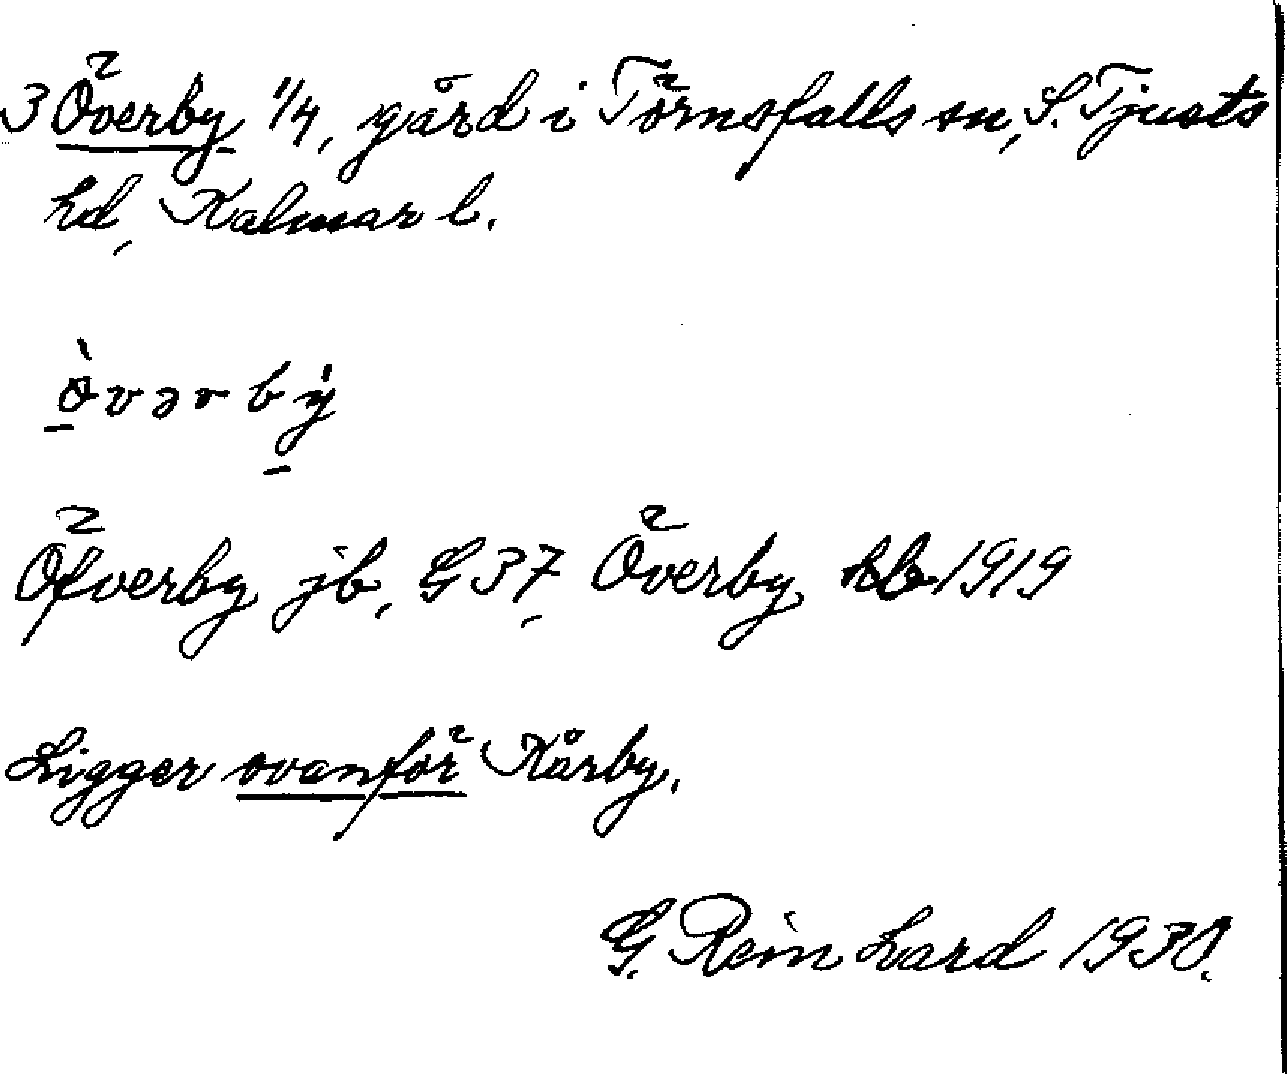 3 Överby 1/4, gård i Törnsfalls sn, S. Tjusts
hd, Kalmar l.
ò̱vərbẏ̱
Öfverby jb, G 37, Överby hb 1919
Ligger ovanför Kårby.
G. Reinhard 1930.